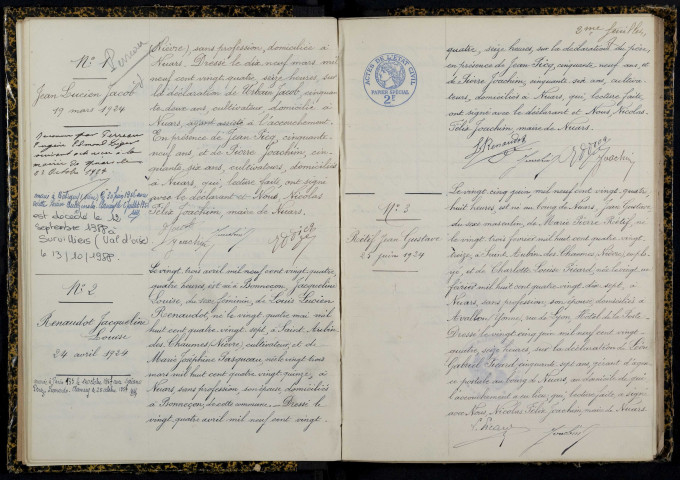 N° 1
Jean Lucien Jacob
19 mars 1924
23 Octobre 1924
est décédé le 12
septembre 1988
à
Survilliers (Val d'oise)
le 13/10/1988
(Nièvre), sans profession, domiciliée à
Nuars. Dressé le dix neuf mars mil
neuf cent vingt quatre, seize heures, sur
la déclaration de Urbain Jacob, cinquante
deux ans, cultivateur, domicilié à
Nuars, ayant assisté à l'accouchement.
En présence de Jean Picq, cinquante
neuf ans, et de Pierre Joachim, cin-
quante six ans, cultivateurs, domiciliés
à Nuars, qui, lecture faite, ont signé
avec le déclarant et Nous Nicolas
Félix Joachim, maire de Nuars.
Jacob
Joachim
N° 2
Renaudot Jacqueline
Louise
24 avril 1924
Le vingt trois avril mil neuf cent vingt quatre,
quatre heures, est née à Bonneçon, Jacqueline
Louise, du sexe féminin, de Louis Lucien
Renaudot, né le vingt quatre mai mil
huit cent quatre vingt sept, à Saint Aubin
des Chaumes Nièvre, cultivateur, et de
Marie Joséphine née le vingt trois
mars mil huit cent quatre vingt quinze, à
Nuars, sans profession, son épouse, domiciliés
à Bonneçon, de cette commune. Dressé le
vingt quatre avril mil neuf cent vingt-
2me feuillet
ACTES DE L'ÉTAT CIVIL
PAPIER SPÉCIAL
2F
quatre, seize heures, sur la déclaration du père,
en présence de Jean Picq, cinquante neuf ans, et
de Pierre Joachim, cinquante six ans, cultiva-
teurs, domiciliés à Nuars, qui, lecture faite,
ont signé avec le déclarant et Nous Nicolas-
Félix Joachim, maire de Nuars.
L Renaudot
Joachim
Joachim
N° 3
Rétif Jean Gustave
25 juin 1924
Le vingt cinq juin mil neuf cent vingt quatre,
huit heures, est né au bourg de Nuars, Jean Gustave
du sexe masculin, de Marie Pierre Rétif, né le
vingt trois février mil huit cent quatre vingt
treize, à Saint Aubin des Chaumes (Nièvre), em-
ployé, et de Charlotte Louise Picard, née le vingt
février mil huit cent quatre vingt dix sept, à
Nuars, sans profession, son épouse, domiciliés à
Avallon Yonne, rue de Lyon Hôtel de la Poste.
Dressé le vingt cinq juin mil neuf cent vingt-
quatre, seize heures, sur la déclaration de Léon
Gabriel Picard, cinquante sept ans, gérant d'agen-
ce postale au bourg de Nuars, au domicile de qui
l'accouchement a eu lieu, qui, lecture faite, a signé
avec Nous, Nicolas Félix Joachim, maire de Nuars.
L Picard
Joachim